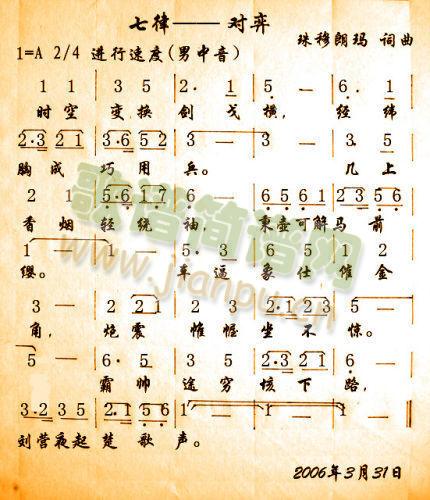 七律——对弈
珠穆朗玛 词曲
1=A 2/4 进行速度(男中音)
1 1 | 3 5 | 2· 1 | 5 — | 6· 1 |
时空 变换 剑戈 横, 经纬
2·3 2 1 | 3·6 5 2 | 3 — | 3 — | 3 5 |
胸成 巧用 兵。 几上
2 1 | 5·6 1 7 | 6 — | 6 5 6 1 | 2 3 5 6 |
香烟 轻绕 袖, 束壶可解马前
1 — | 1 — | 5· 3 | 3 5 6 | 1 2 |
缨。 车逼 象仕 催金
3 — | 2 2 1 | 2 2 | 2·1 2 3 | 2 — |
角, 炮震 帷幄 坐不 惊。
5 — | 6· 5 | 3 5 | 2·3 2 1 | 6 — |
霸帅 途穷 垓下 路,
3·2 3 5 | 2·1 5 6 | 1 — | 1 — | 1 — |
刘营夜起 楚歌 声。
2006年3月31日
歌谱简谱网
www.jianpu.cn